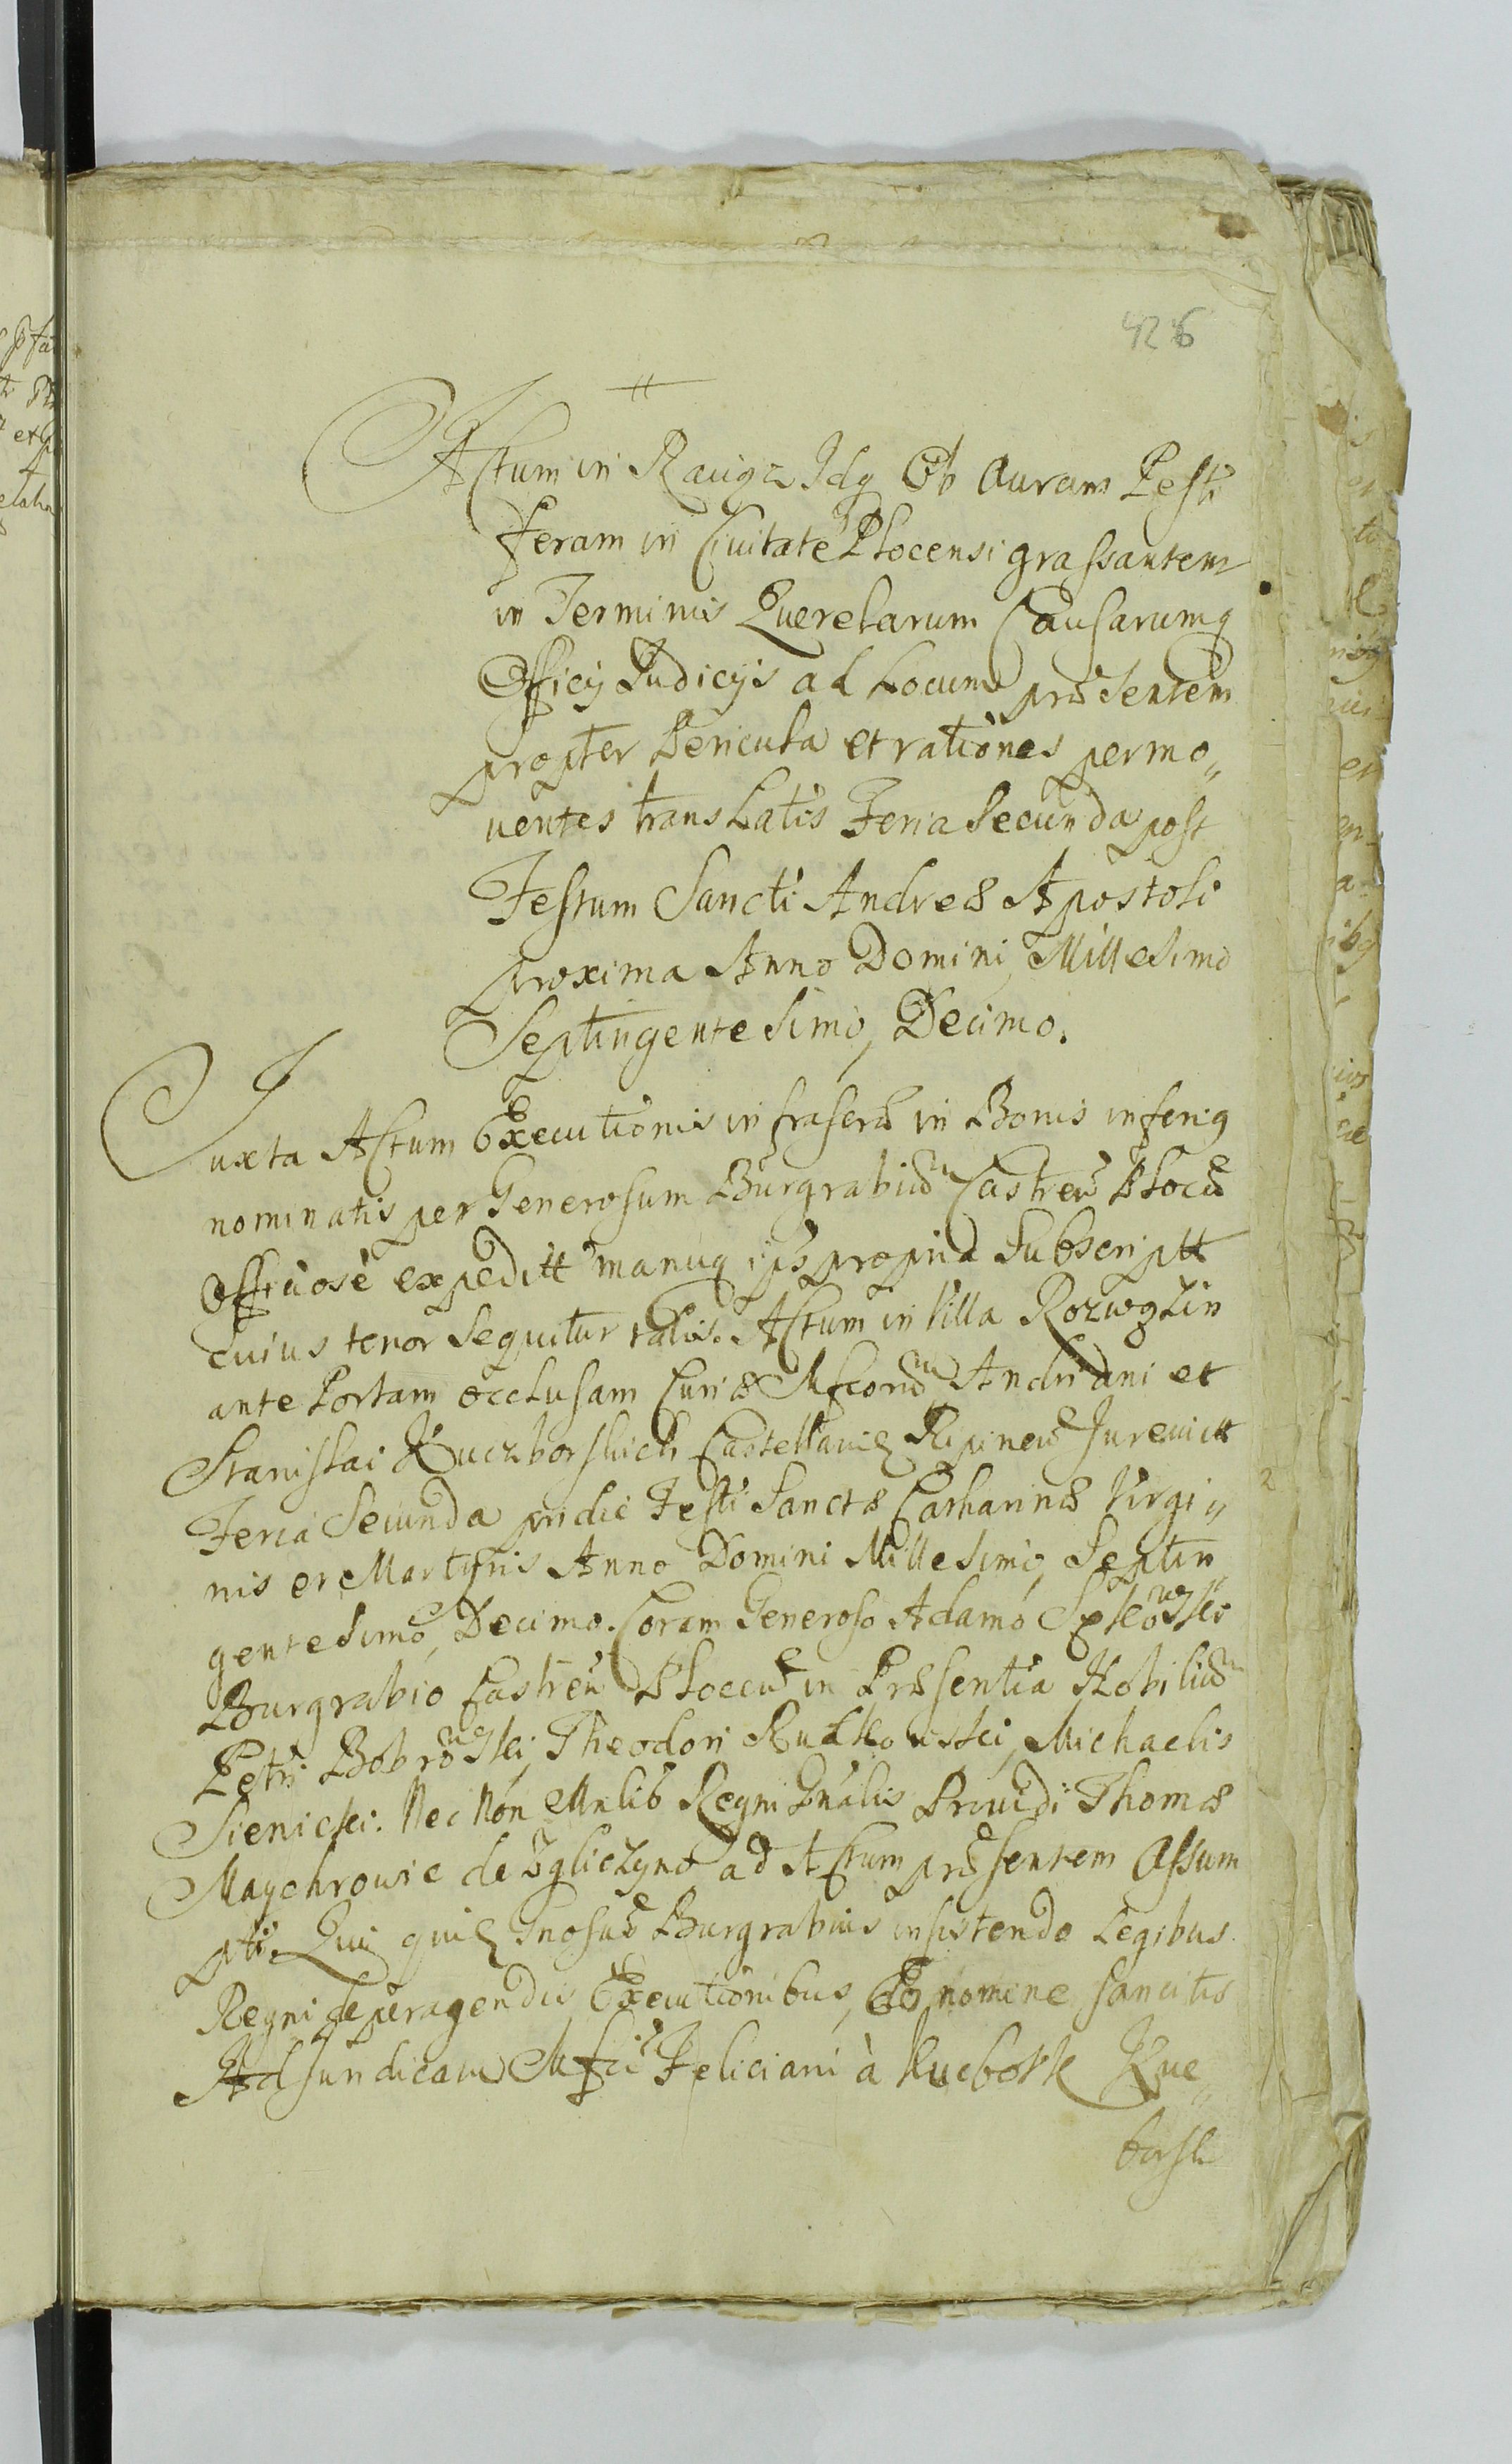 426
Actum in Raciąz Idq Ob Auram Pesti
feram in Civitate Plocensi grassantem
in Terminis Querelarum Causarumq
Officij Judicijs ad Locum præsentem
propter Pericula et rationes permo„
uentes translatis Feria Secunda post
Festum Sancti Andreæ Apostoli
proxima Anno Domini Millesimo
Septingentesimo, Decimo.
Juxta Actum Executionis infrascr in Bonis inferiq
nominatis per Generosum Burgrabium Castren Plocen
Officiose expeditt manuq ips propria Subscriptt
cuius tenor Sequitur talis. Actum in Villa Rozwozin
ante Portam occlusam Curiæ Mfcorum Andreani et
Stanislai Kuczborskich Castellani Ripinen Jurevictt
Feria Secunda pridie Festi Sanctæ Catharinæ Virgi„
nis et Martyris Anno Domini Millesimo, Septin
gentesimo, Decimo. Coram Generoso Adamo
Burgrabio Castren Plocen in Præsentia Nobilium
Petri Bobrowski, Theodori Rutkowski, Michaelis
Sienicki. Nec Non Mnlib Regni Gnalis Providi Thomæ
Maychrowic de Zgliczyno ad Actum præsentem Assum
pti. Qui quid Gnosus Burgrabius insistendo Legibus
Regni de peragendis Executionibus, Eo nomine sancitis
Ad Jundicam Mfci Feliciani à Kucbork Kuc„
borsk